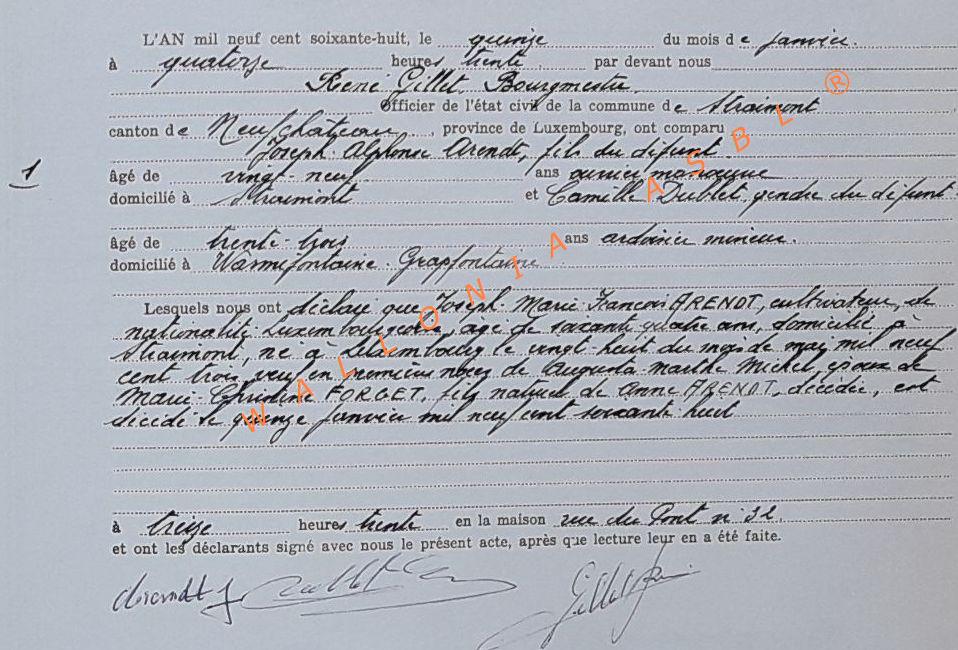 L'AN mil neuf cent soixante-huit, le quinze du mois de janvier.
à quatorze heures trente par devant nous
René Gillet, Bourgmestre.
Officier de l'état civil de la commune de Straimont
canton de Neufchâteau, province de Luxembourg, ont comparu
Joseph Alphonse Arendt, fils du défunt.
1
âgé de vingt-neuf ans ouvrier manoeuvre
domicilié à Straimont et Camille Dublet, gendre du défunt
âgé de trente-trois ans ardoisier mineur.
domicilié à Warmifontaine-Grapfontaine
Lesquels nous ont déclaré que Joseph Marie François ARENDT, cultivateur, de
nationalité Luxembourgeoise, agé de soixante quatre ans, domicilié à
Straimont, né à Luxembourg le vingt huit du mois de mai mil neuf
cent trois, veuf en premières noces de Augusta Marthe Michel, époux de
Marie-Christine FORGET, fils naturel de Anne ARENDT, décédée, est
décédé le quinze janvier mil neuf cent soixante huit
à treize heures trente en la maison rue du Pont n° 32.
et ont les déclarants signé avec nous le présent acte, après que lecture leur en a été faite.
Arendt J
WALLONIA ASBL ®